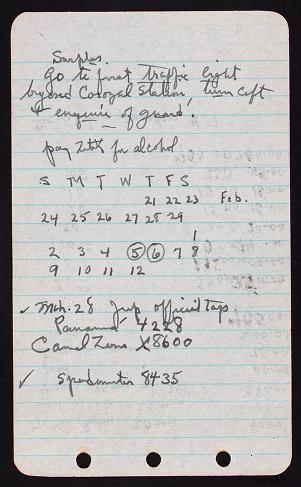 Surplus.
Go to first traffic light
beyond Corozal Station, turn left
+ enquire of guard.
pay for alcohol
S M T W T F S
21 22 23 Feb.
24 25 26 27 28 29
1
2 3 4 5 6 7 8
9 10 11 12
✓ Mch. 28 official Tags
Panama 4228
Canal Zone X8600
✓ Speedometer 8435